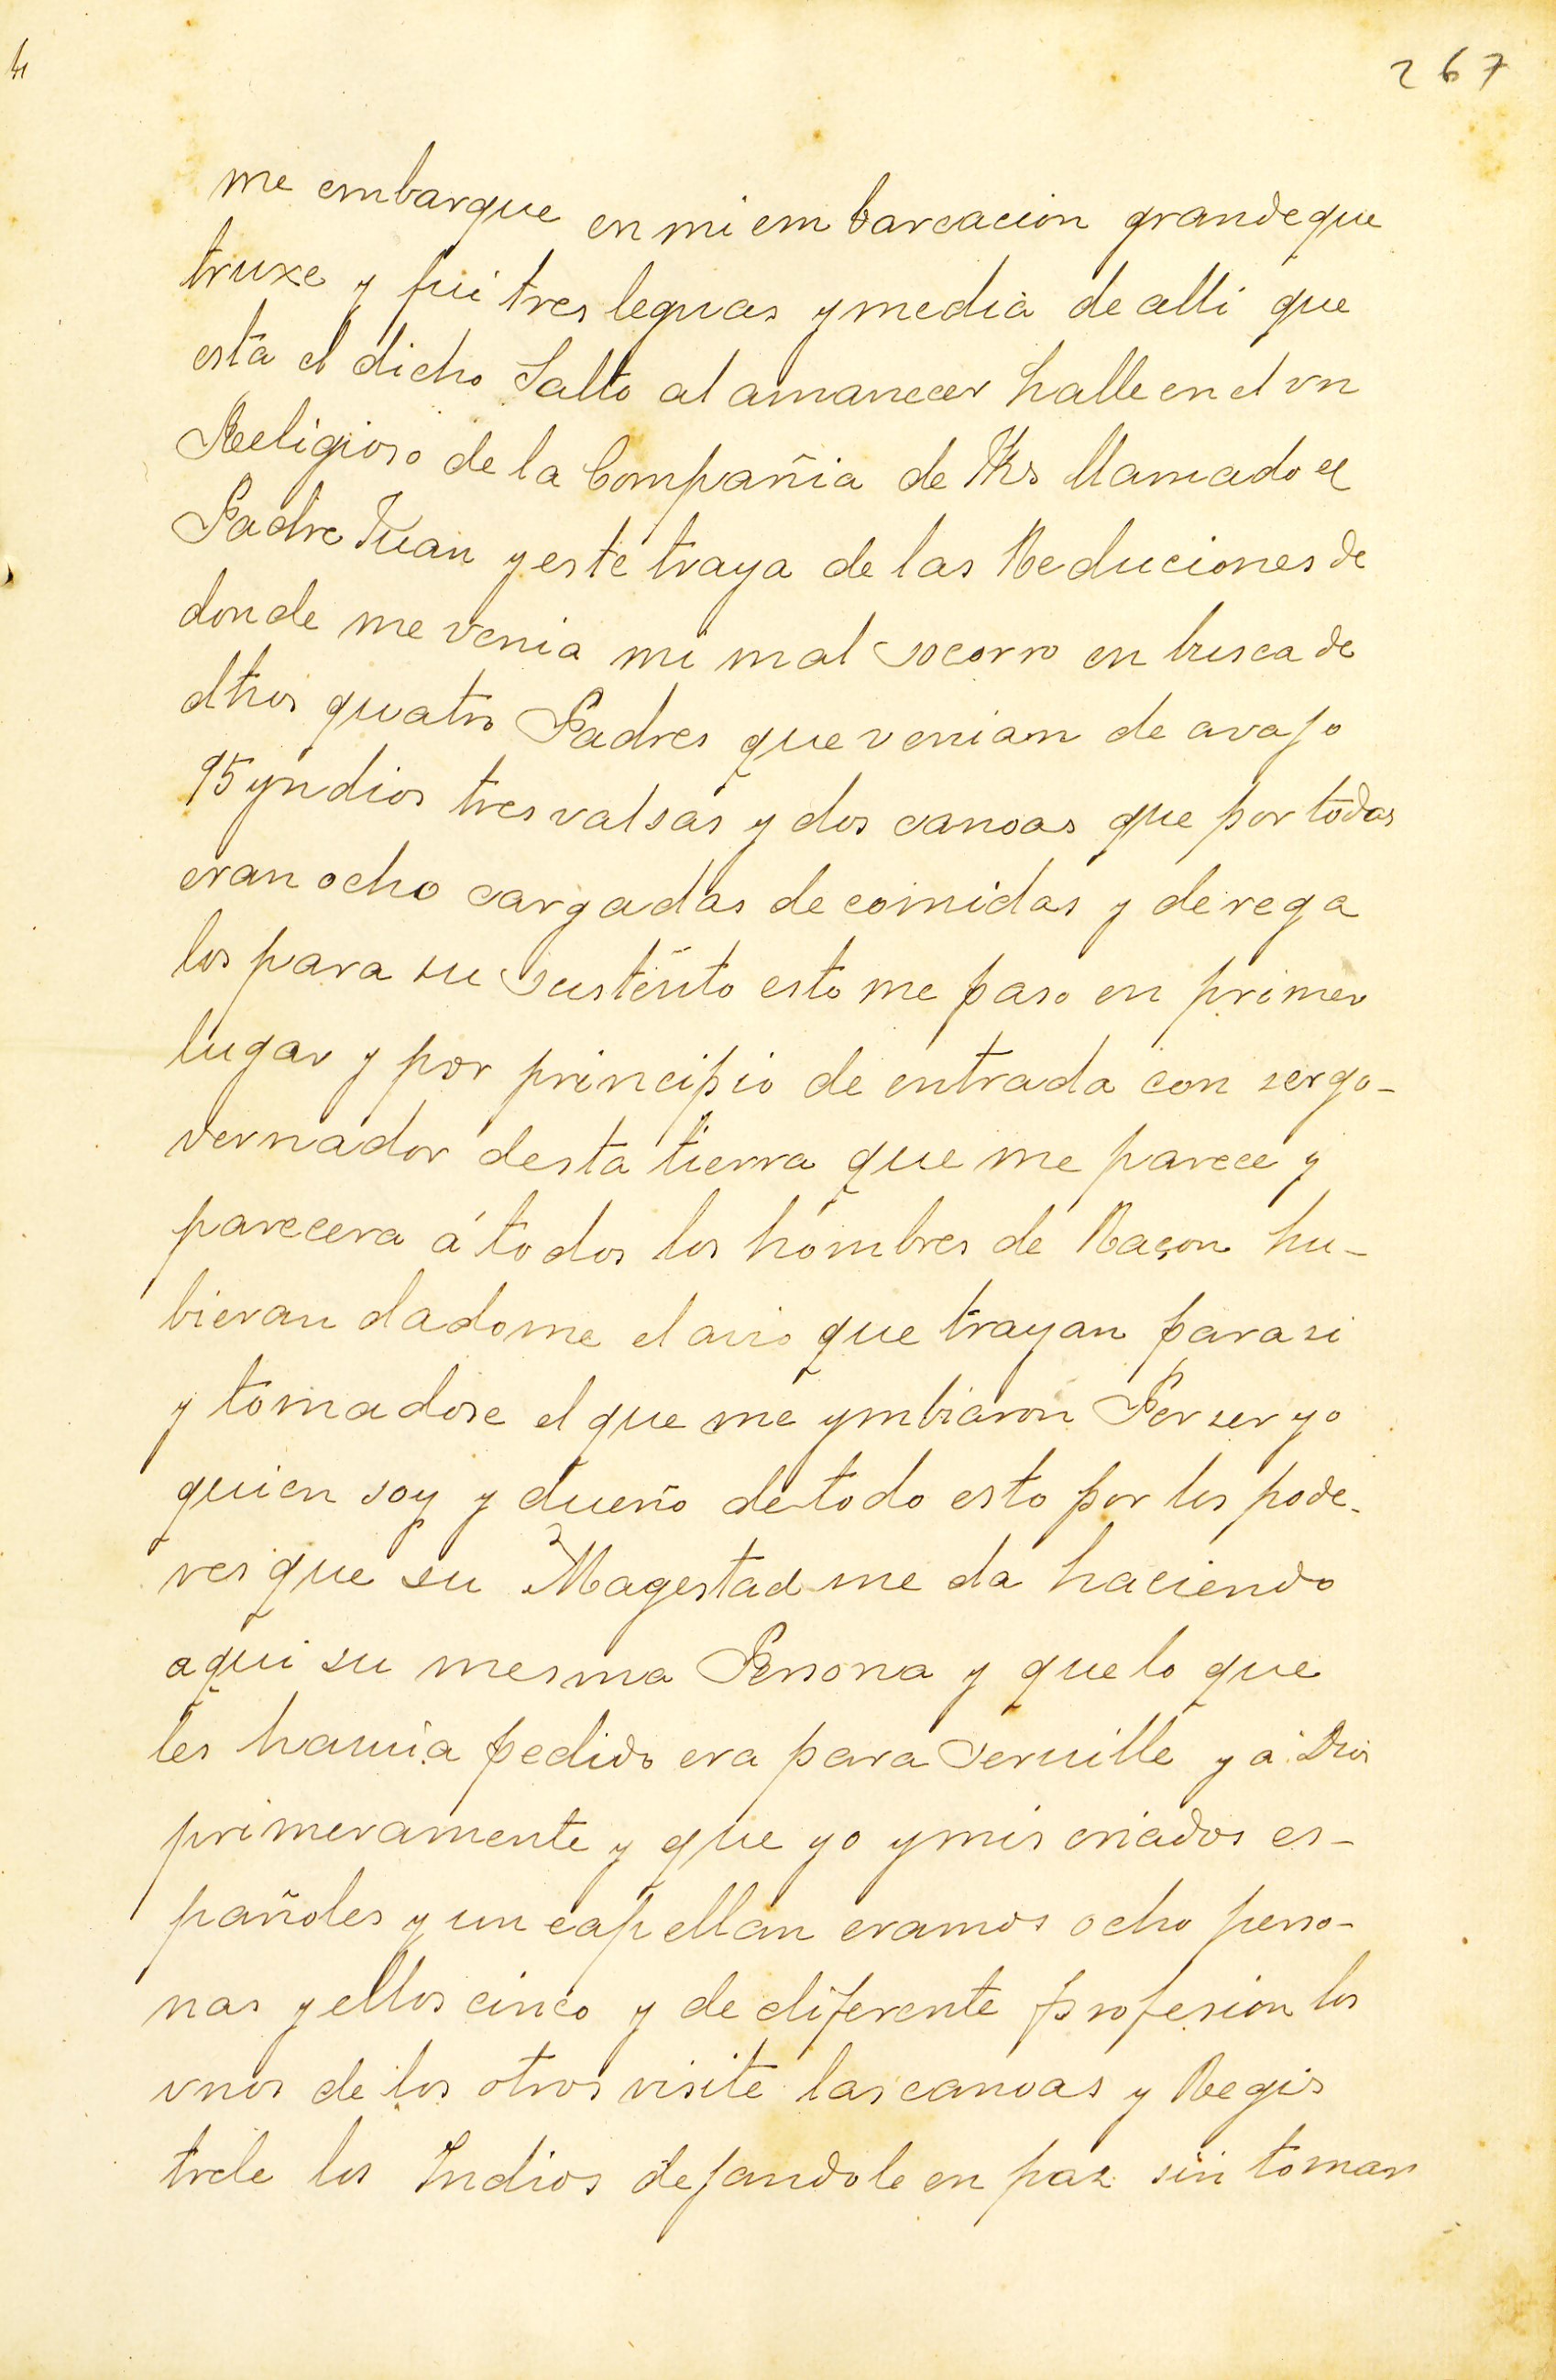 267
me embarque en mi embarcacion grande que
truxe y fui tres leguas y media de alli que
está el dicho Salto al amanecer halle en el vn
Religioso de la Compañia de Jhs llamado el
Padre Juan y este traya de las Reduciones de
donde me venia mi mal socorro en busca de
otros quatro Padres que venian de avajo
95 yndios tres valsas y dos canoas que por todas
eran ocho cargadas de comidas y de rega
los para su sustēnto esto me paso en primer
lugar y por principio de entrada con ser go-
vernador desta tierra que me parece y
parecera á todos los hombres de Raçon hu-
bieran dadome el avio que trayan para si
y tomadose el que me ymbiaron Por ser yo
quien soy y dueño de todo esto por los pode-
res que su Magestad me da haciendo
aqui su mesma Persona y que lo que
les hauia pedido era para seruille y á Dios
primeramente y que yo y mis criados es-
pañoles y un capellan eramos ocho perso-
nas y ellos cinco y de diferente profesion los
vnos de los otros visite las canoas y Regis
trele los Indios dejandole en paz sin tomar